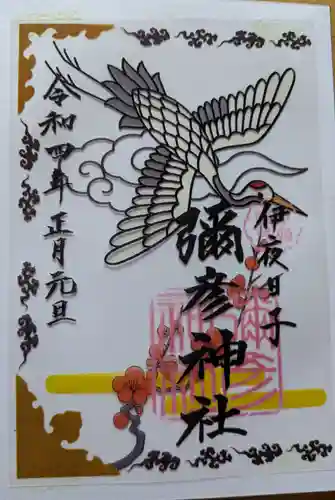 伊夜日子
彌彦神社
令和四年正月元旦